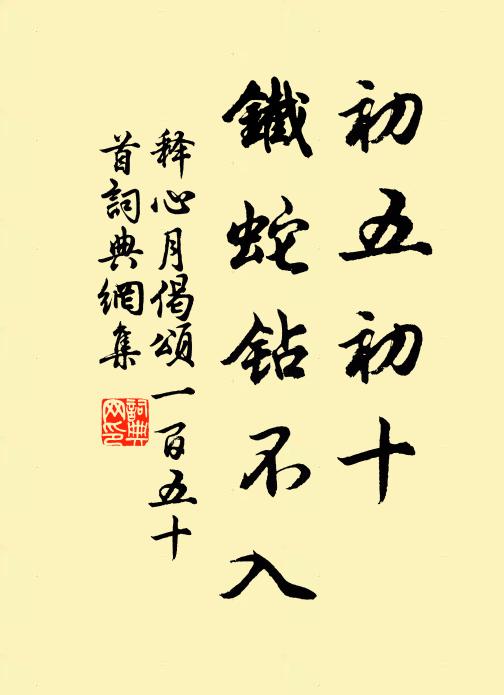 初五初十
鐵蛇鉆不入
释心月偈頌一百五十
首詞典網集
詞典
网印